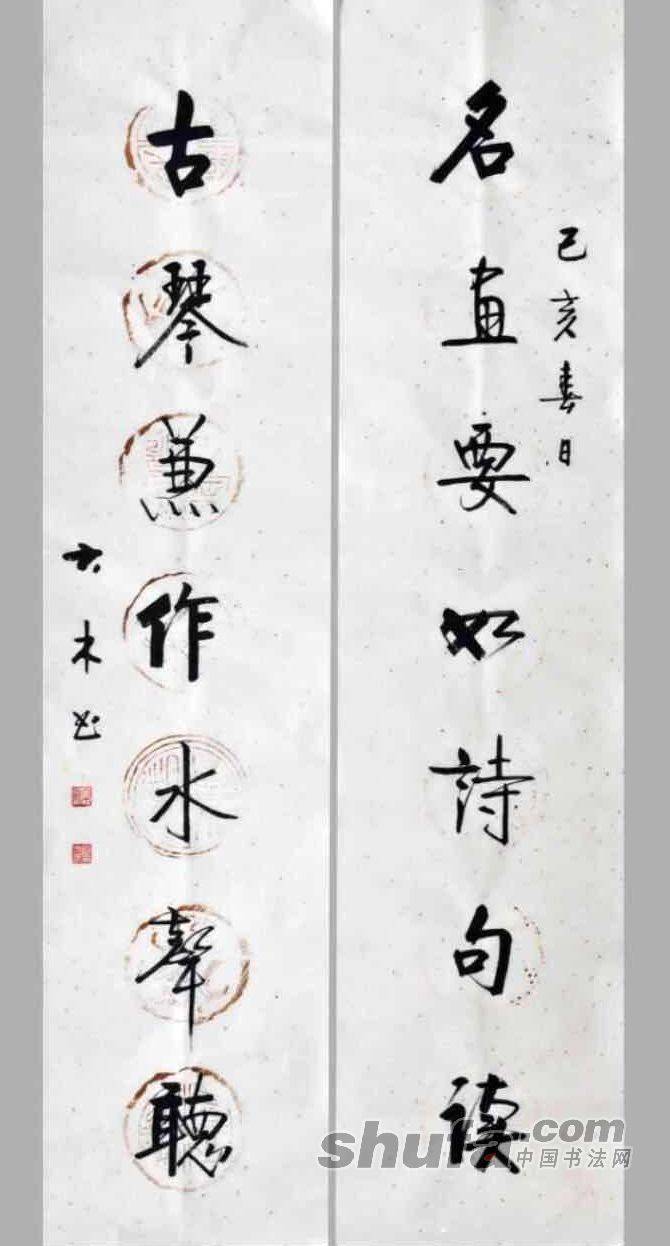 名畫要如詩句讀
己亥春日
古琴兼作水聲聽
大木书
shufa.com
中国书法网